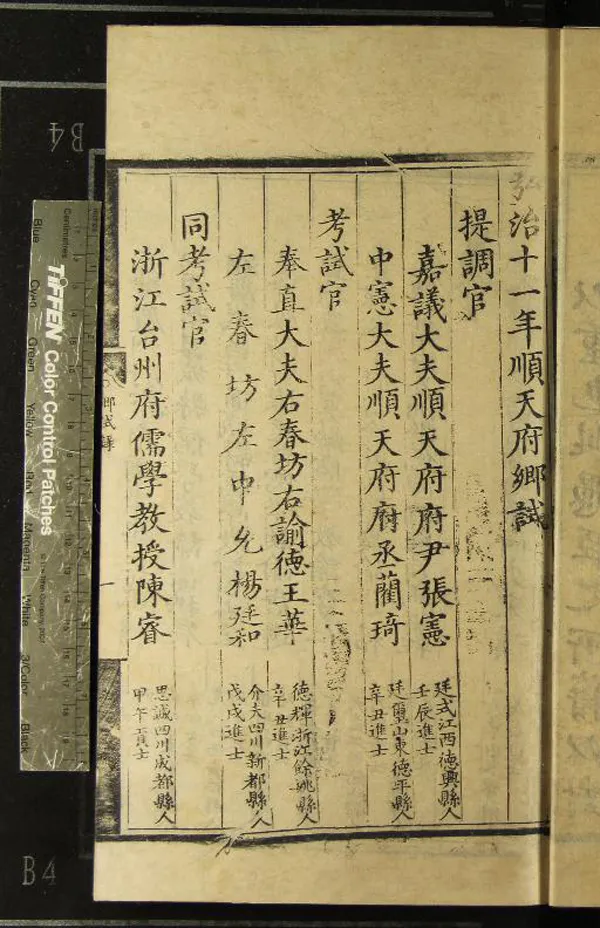 弘治十一年順天府鄉試
提調官
嘉議大夫順天府府尹張憲
廷式江西德興縣人
壬辰進士
中憲大夫順天府府丞藺琦
廷璽山東德平縣人
辛丑進士
考試官
奉直大夫右春坊右諭德王華
德輝浙江餘姚縣人
辛丑進士
左春坊左中允楊廷和
介夫四川新都縣人
戊戌進士
同考試官
浙江台州府儒學教授陳睿
思誠四川成都縣人
甲午貢士
鄉試錄
一
B4
B4
TIFFEN Color Control Patches
Centimetres
Blue
Cyan
Green
Yellow
Red
Magenta
White
3/Color
Black